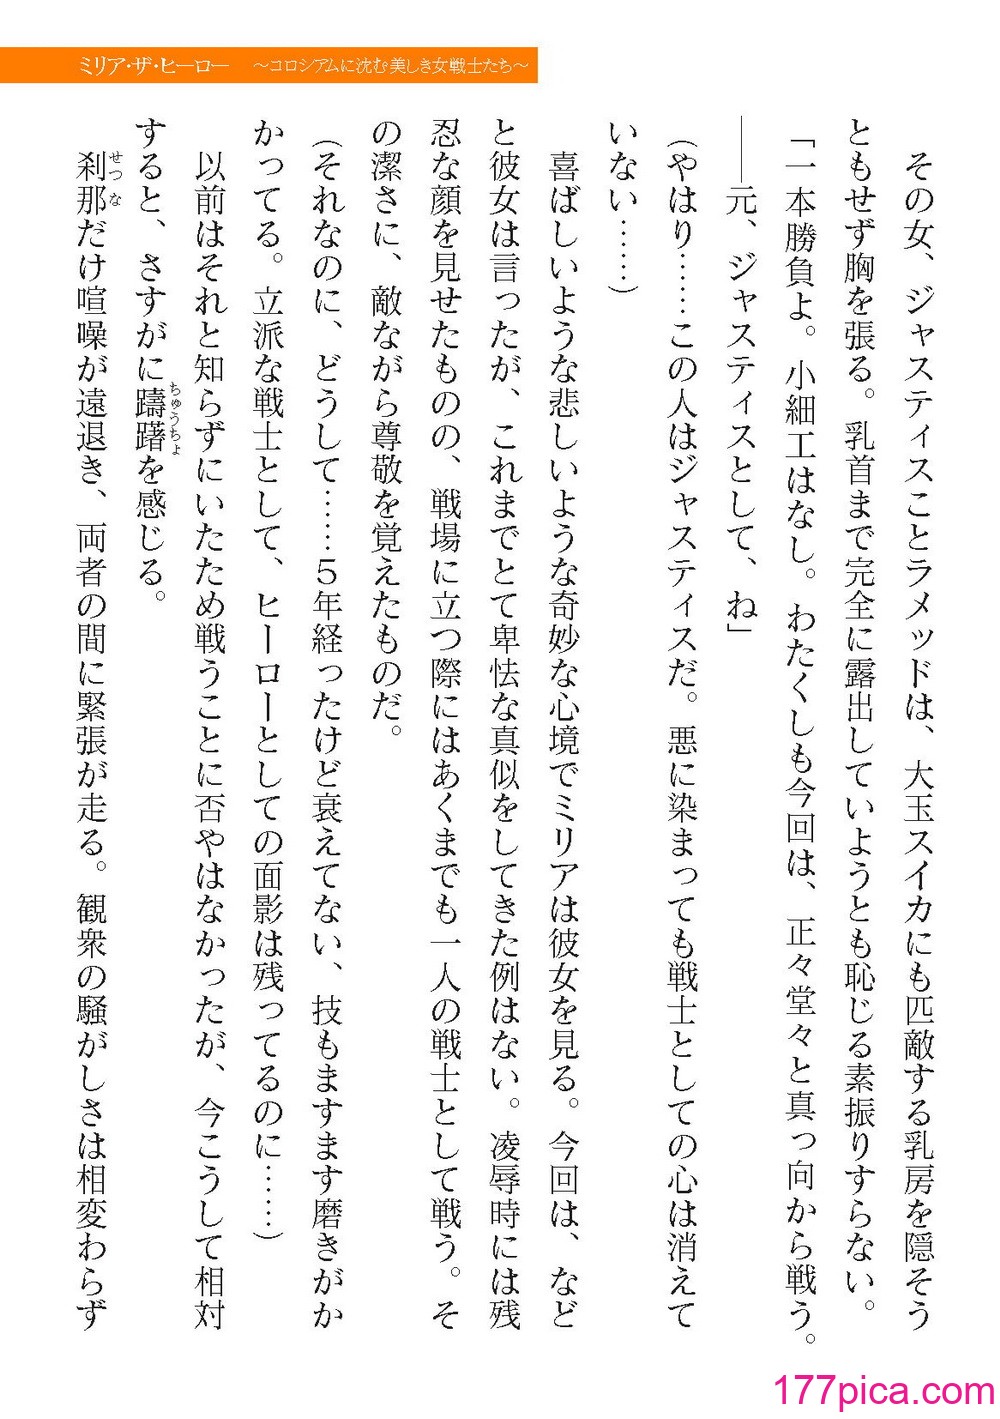 ミリア・ザ・ヒーロー　～コロシアムに沈む美しき女戦士たち～
　その女、ジャスティスことラメッドは、大玉スイカにも匹敵する乳房を隠そう
ともせず胸を張る。乳首まで完全に露出していようとも恥じる素振りすらない。
「一本勝負よ。小細工はなし。わたくしも今回は、正々堂々と真っ向から戦う。
――元、ジャスティスとして、ね」
（やはり……この人はジャスティスだ。悪に染まっても戦士としての心は消えて
いない……）
　喜ばしいような悲しいような奇妙な心境でミリアは彼女を見る。今回は、など
と彼女は言ったが、これまでとて卑怯な真似をしてきた例はない。凌辱時には残
忍な顔を見せたものの、戦場に立つ際にはあくまでも一人の戦士として戦う。そ
の潔さに、敵ながら尊敬を覚えたものだ。
（それなのに、どうして……５年経ったけど衰えてない、技もますます磨きがか
かってる。立派な戦士として、ヒーローとしての面影は残ってるのに……）
　以前はそれと知らずにいたため戦うことに否やはなかったが、今こうして相対
すると、さすがに躊躇を感じる。
ちゅうちょ
　刹那だけ喧噪が遠退き、両者の間に緊張が走る。観衆の騒がしさは相変わらず
せつな
177pica.com